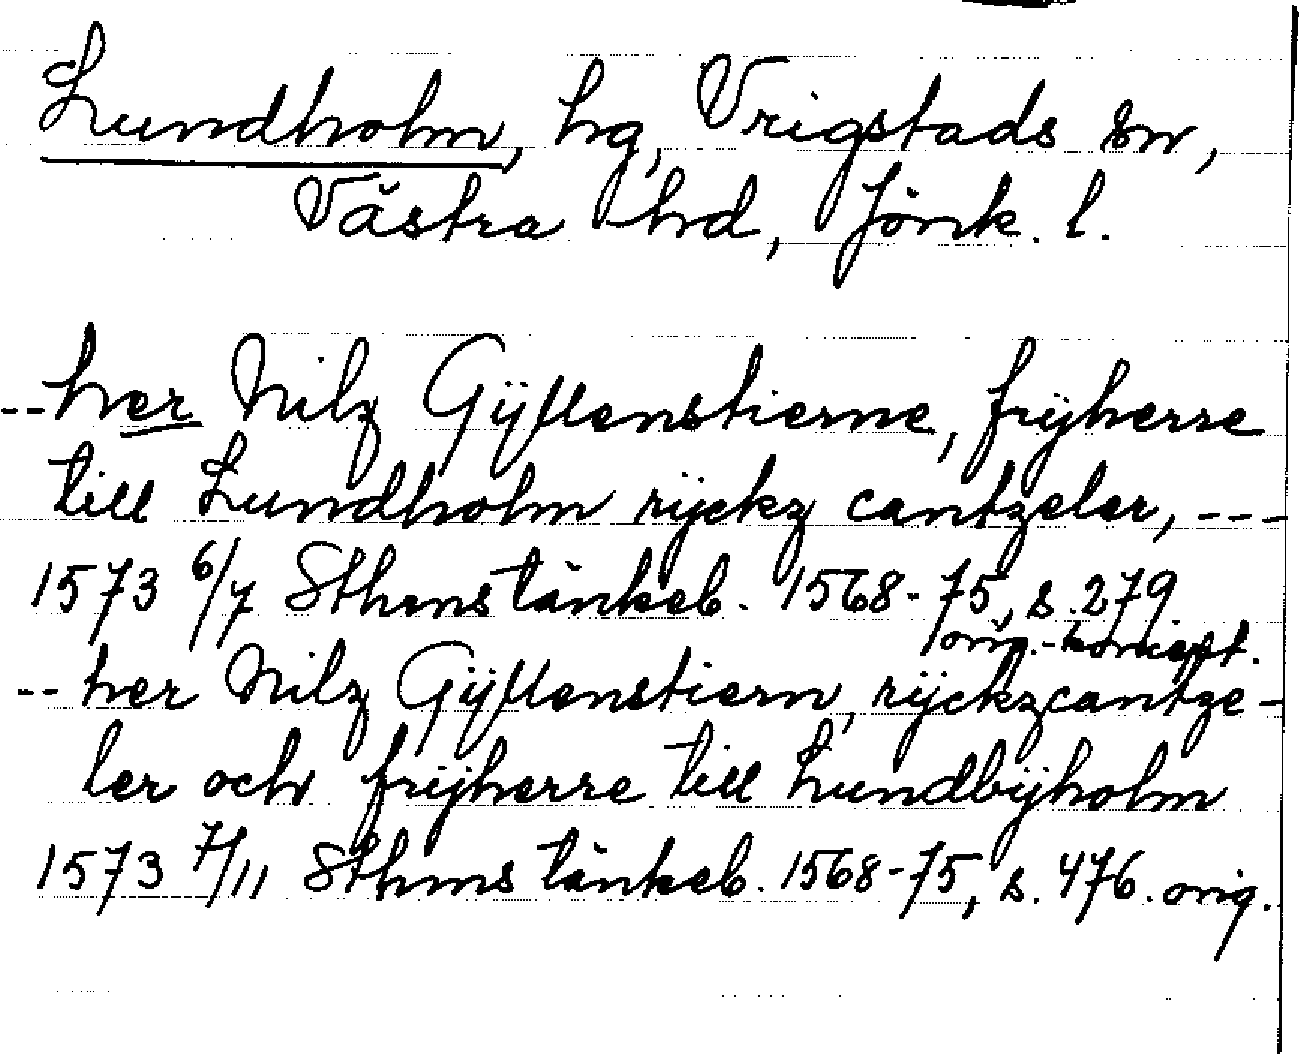 Lundholm, hg, Vrigstads sn,
Västra hd, Jönk. l.
-- her Nilz Gÿllenstierne, frÿherre
till Lundholm rÿckz cantzeler, ---
1573 6/7 Sthms tänkeb. 1568-75, s. 279
orig.-koncept.
-- her Nilz Gÿllenstiern, rÿckzcantze-
ler och frÿherre till Lundbÿholm
1573 7/11 Sthms tänkeb. 1568-75, s. 476. orig.